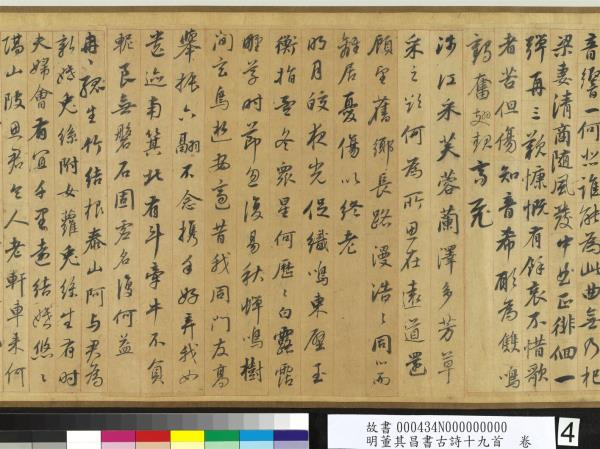 音響一何悲誰能為此曲無乃杞
梁妻清商隨風發中曲正徘徊一
彈再三歎慷慨有餘哀不惜歌
者苦但傷知音希願為雙鳴
鶴奮翅起高飛
涉江采芙蓉蘭澤多芳草
采之欲何為所思在遠道還
顧望舊鄉長路漫浩〻同心而
離居憂傷以終老
明月皎夜光促織鳴東壁玉
衡指孟冬眾星何歷〻白露霑
野草時節忽復易秋蟬鳴樹
間玄鳥逝安適昔我同門友高
舉振六翮不念攜手好弃我如
遺迹南箕北有斗牽牛不負
軛良無磐石固虛名復何益
冉〻孤生竹結根泰山阿與君為
新婚兔絲附女蘿兔絲生有時
夫婦會有宜千里遠結婚悠〻
隔山陂思君令人老軒車來何
故書 000434N000000000
明董其昌書古詩十九首 卷
4